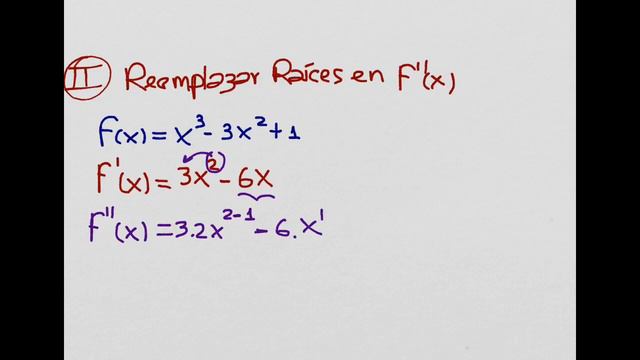 II Reemplazar Raíces en F''(x)
F(x) = x³ - 3x² + 1
F'(x) = 3x² - 6x
F''(x) = 3.2x²⁻¹ - 6.x'